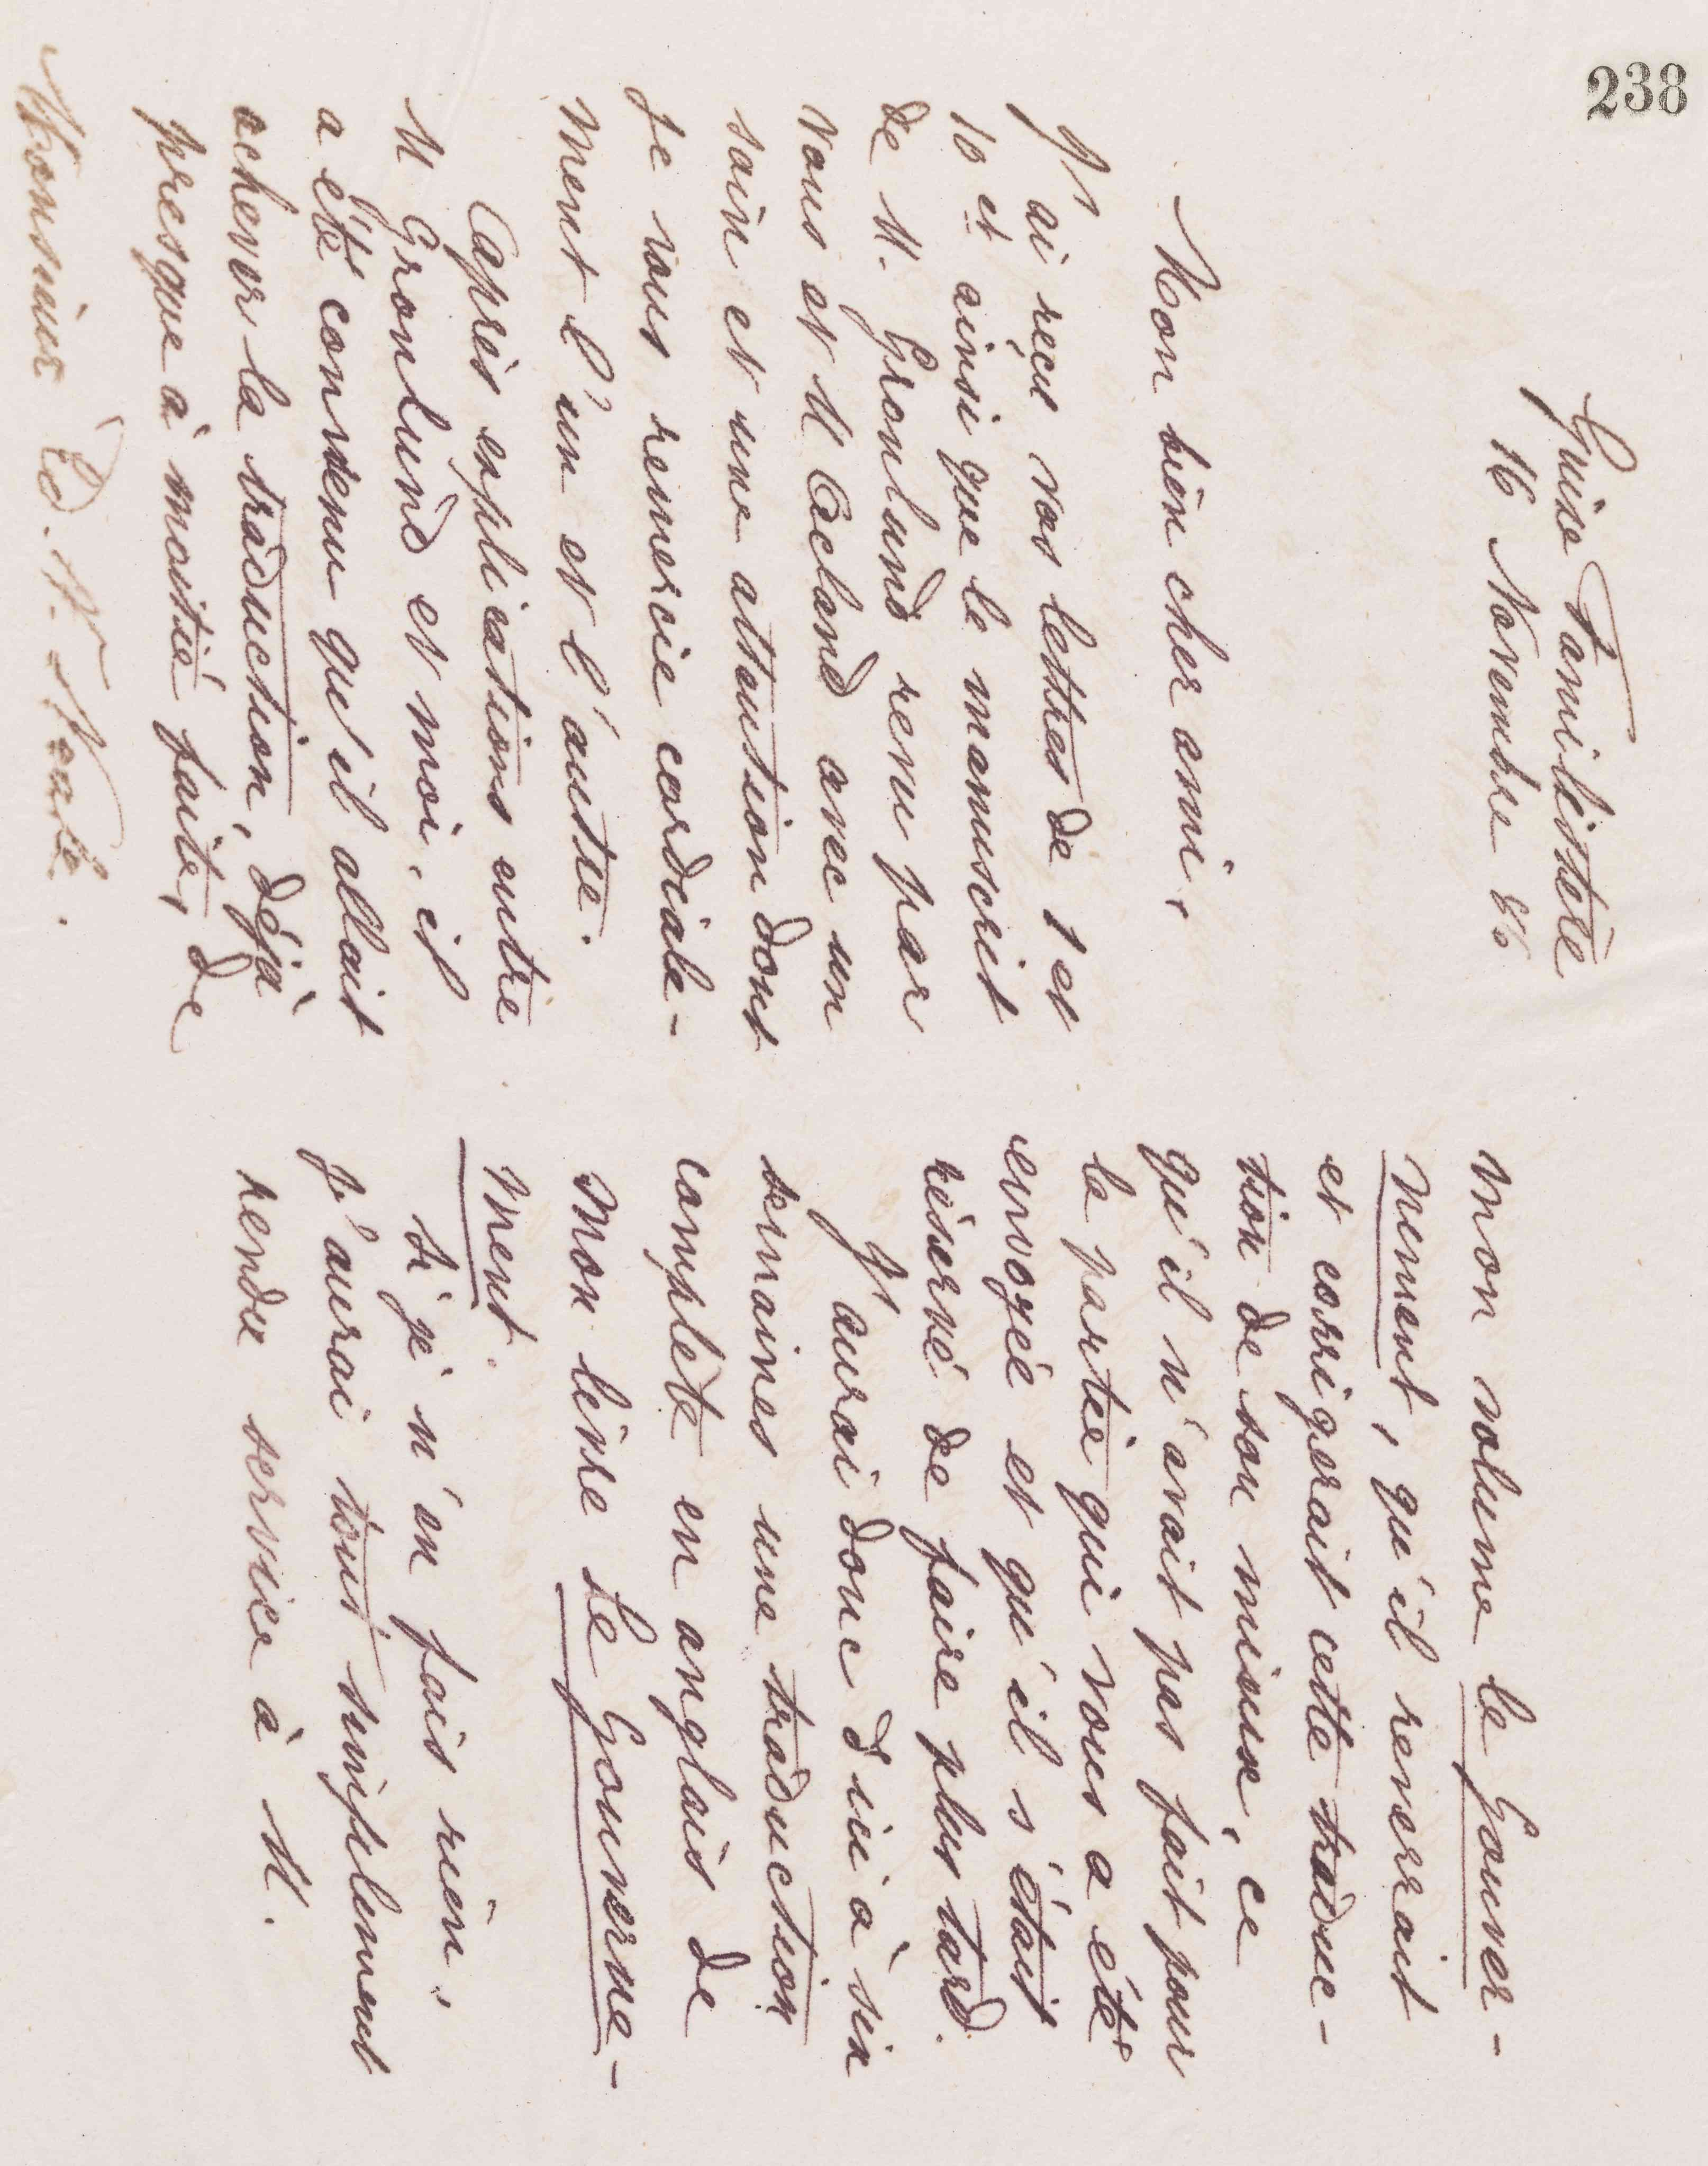 238
Guise Familistère
16 Novembre 86
Mon bien cher ami,
J'ai reçu vos lettres de 1 et
10 ct ainsi que le manuscrit
de M. Gronlund revu par
vous et M Acland avec un
soin et une attention dont
je vous remercie cordiale-
ment l'un et l'autre.
Après explications entre
M Gronlund et moi, il
a été convenu qu'il allait
achever la traduction, déjà
presque à moitié faite, de
Monsieur Ed. V. Neale.
mon volume le Gouver-
nement, qu'il reverrait
et corrigerait cette traduc-
tion de son mieux, ce
qu'il n'avait pas fait pour
la partie qui vous a été
envoyée et qu'il s'était
réservé de faire plus tard.
J'aurai donc d'ici à six
semaines une traduction
complète en anglais de
mon livre Le Gouverne-
ment.
Si je n'en fais rien,
j'aurai tout simplement
rendu service à M.